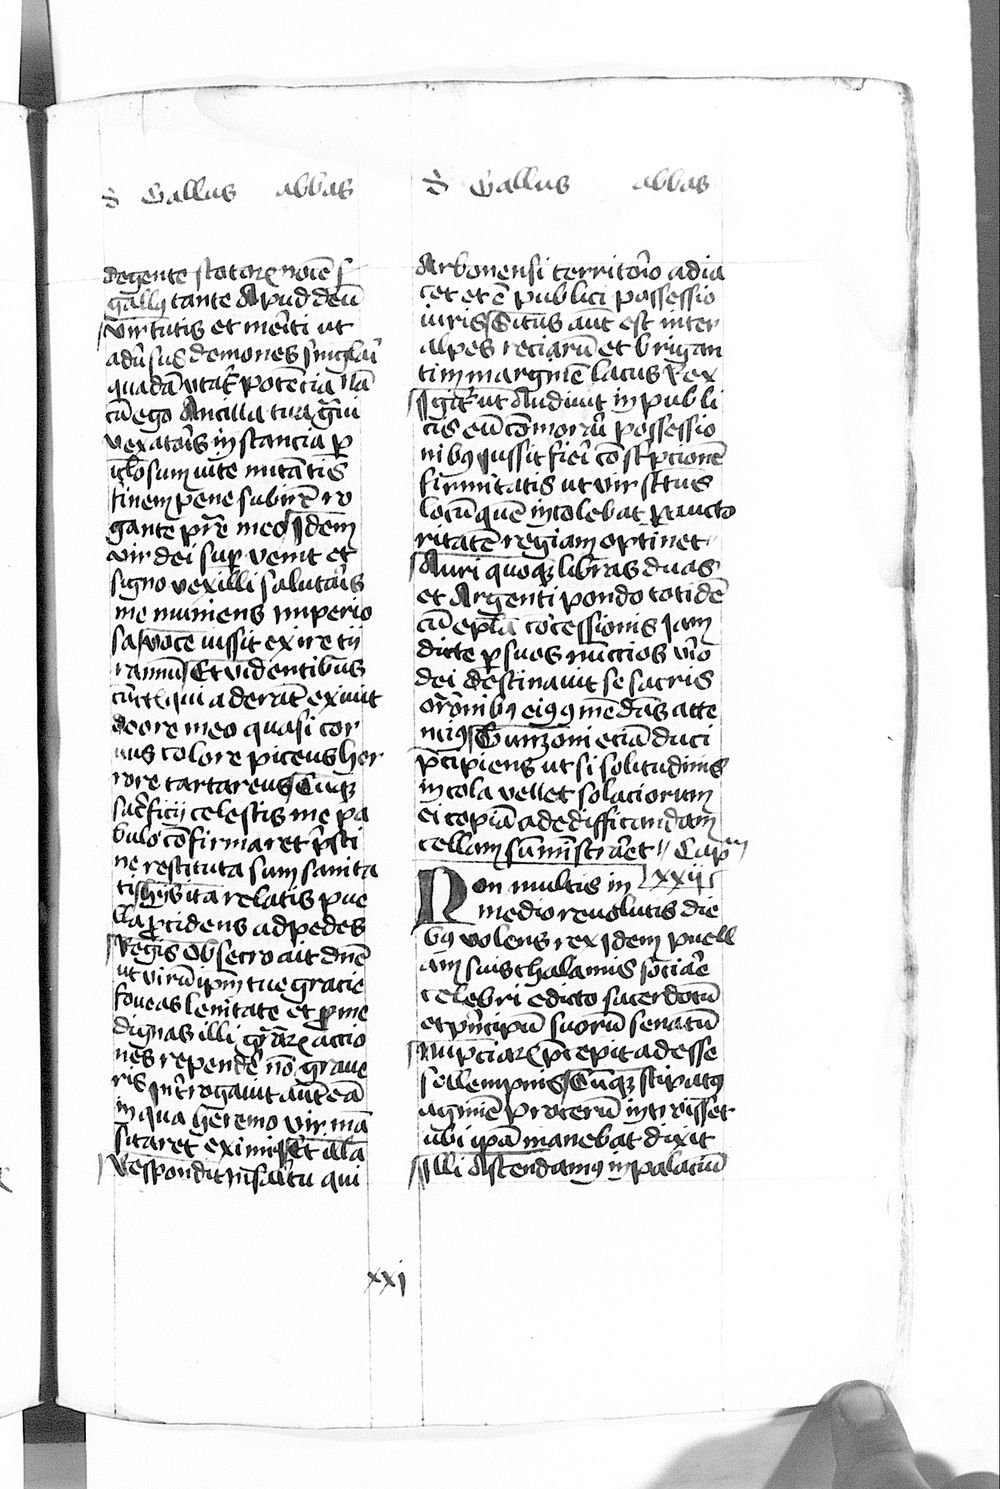 S Gallus abbas
degente scotorꝝ noīe s
gallꝫ tante Apud deū
virtutis et meriti ut
adūsus demones singlari
quadā utat᷑ potēcia Nā
cū ego Ancilla tua grāui
vexatoris instancia ꝑ
iclosum uite mutātis
finem pene subirē ro
gante pr̄e meo Idem
vir dei suꝑ venit et
signo vexilli salutaris
me muniens imperio
sa voce iussit exire tii
rannū Et videntibus
cūctꝭ qui aderāt exiuit
de ore meo quasi cor
uus colore piceus her
rore tartareus Cūqꝫ
sacrficij celestis me pa
bulo cōfirmaret pristi
ne restituta sum sanita
ti hijs ita relatis pue
lla ꝓcidens ad pedes
Regis Obsecro ait dn̄e
ut virū ip̄m tue gracie
foueas lenitate et ꝓ me
dignas illi gr̄arꝝ actio
nes rependē nō graue
ris Int̄rogauit aūt eā
in qua heremo vir mā
sitaret eximiꝰ Et illa
Respondit In saltu qui
S Gallus abbas
Arbonensi territorio adia
cet et ē publici possessio
iuris Situs aūt est inter
alpes reciarū et brigan
tim marginē lacus Rex
Igit᷑ ut Audiuit in publi
cis eū cōmorari possessio
nibꝰ iussit fieri cōscpcionē
firmitatis ut vir sctūs
locū quē incolebat ꝑ aucto
ritatē regiam optinet
Auri quoqꝫ libras duas
et Argenti pondo totidē
cū epl̄a cōcessionis Jam
dicte ꝑ suos nūccios viro
dei destinauit se sacris
or̄onibꝰ eiꝰ ꝯmēdās atte
nciꝰ Gunzoni eciā duci
p̄cipiens ut si solitudinis
incola vellet solaciorum
ei copiā ad edifficandam
cellam sūministrāet Capm
Lxxij
Non multis in
medio reuolutis die
bꝰ volens rex Idem puell
am suis thalamis sociāe
celebri edicto sacerdotū
et principū suorū senatū
Nupciarꝝ p̄cepit adesse
sollempnis Cūqꝫ stipatꝰ
agminē procerū introisset
ubi ipā manebat dixit
Illi Ascendamꝰ in palaciū
xxj